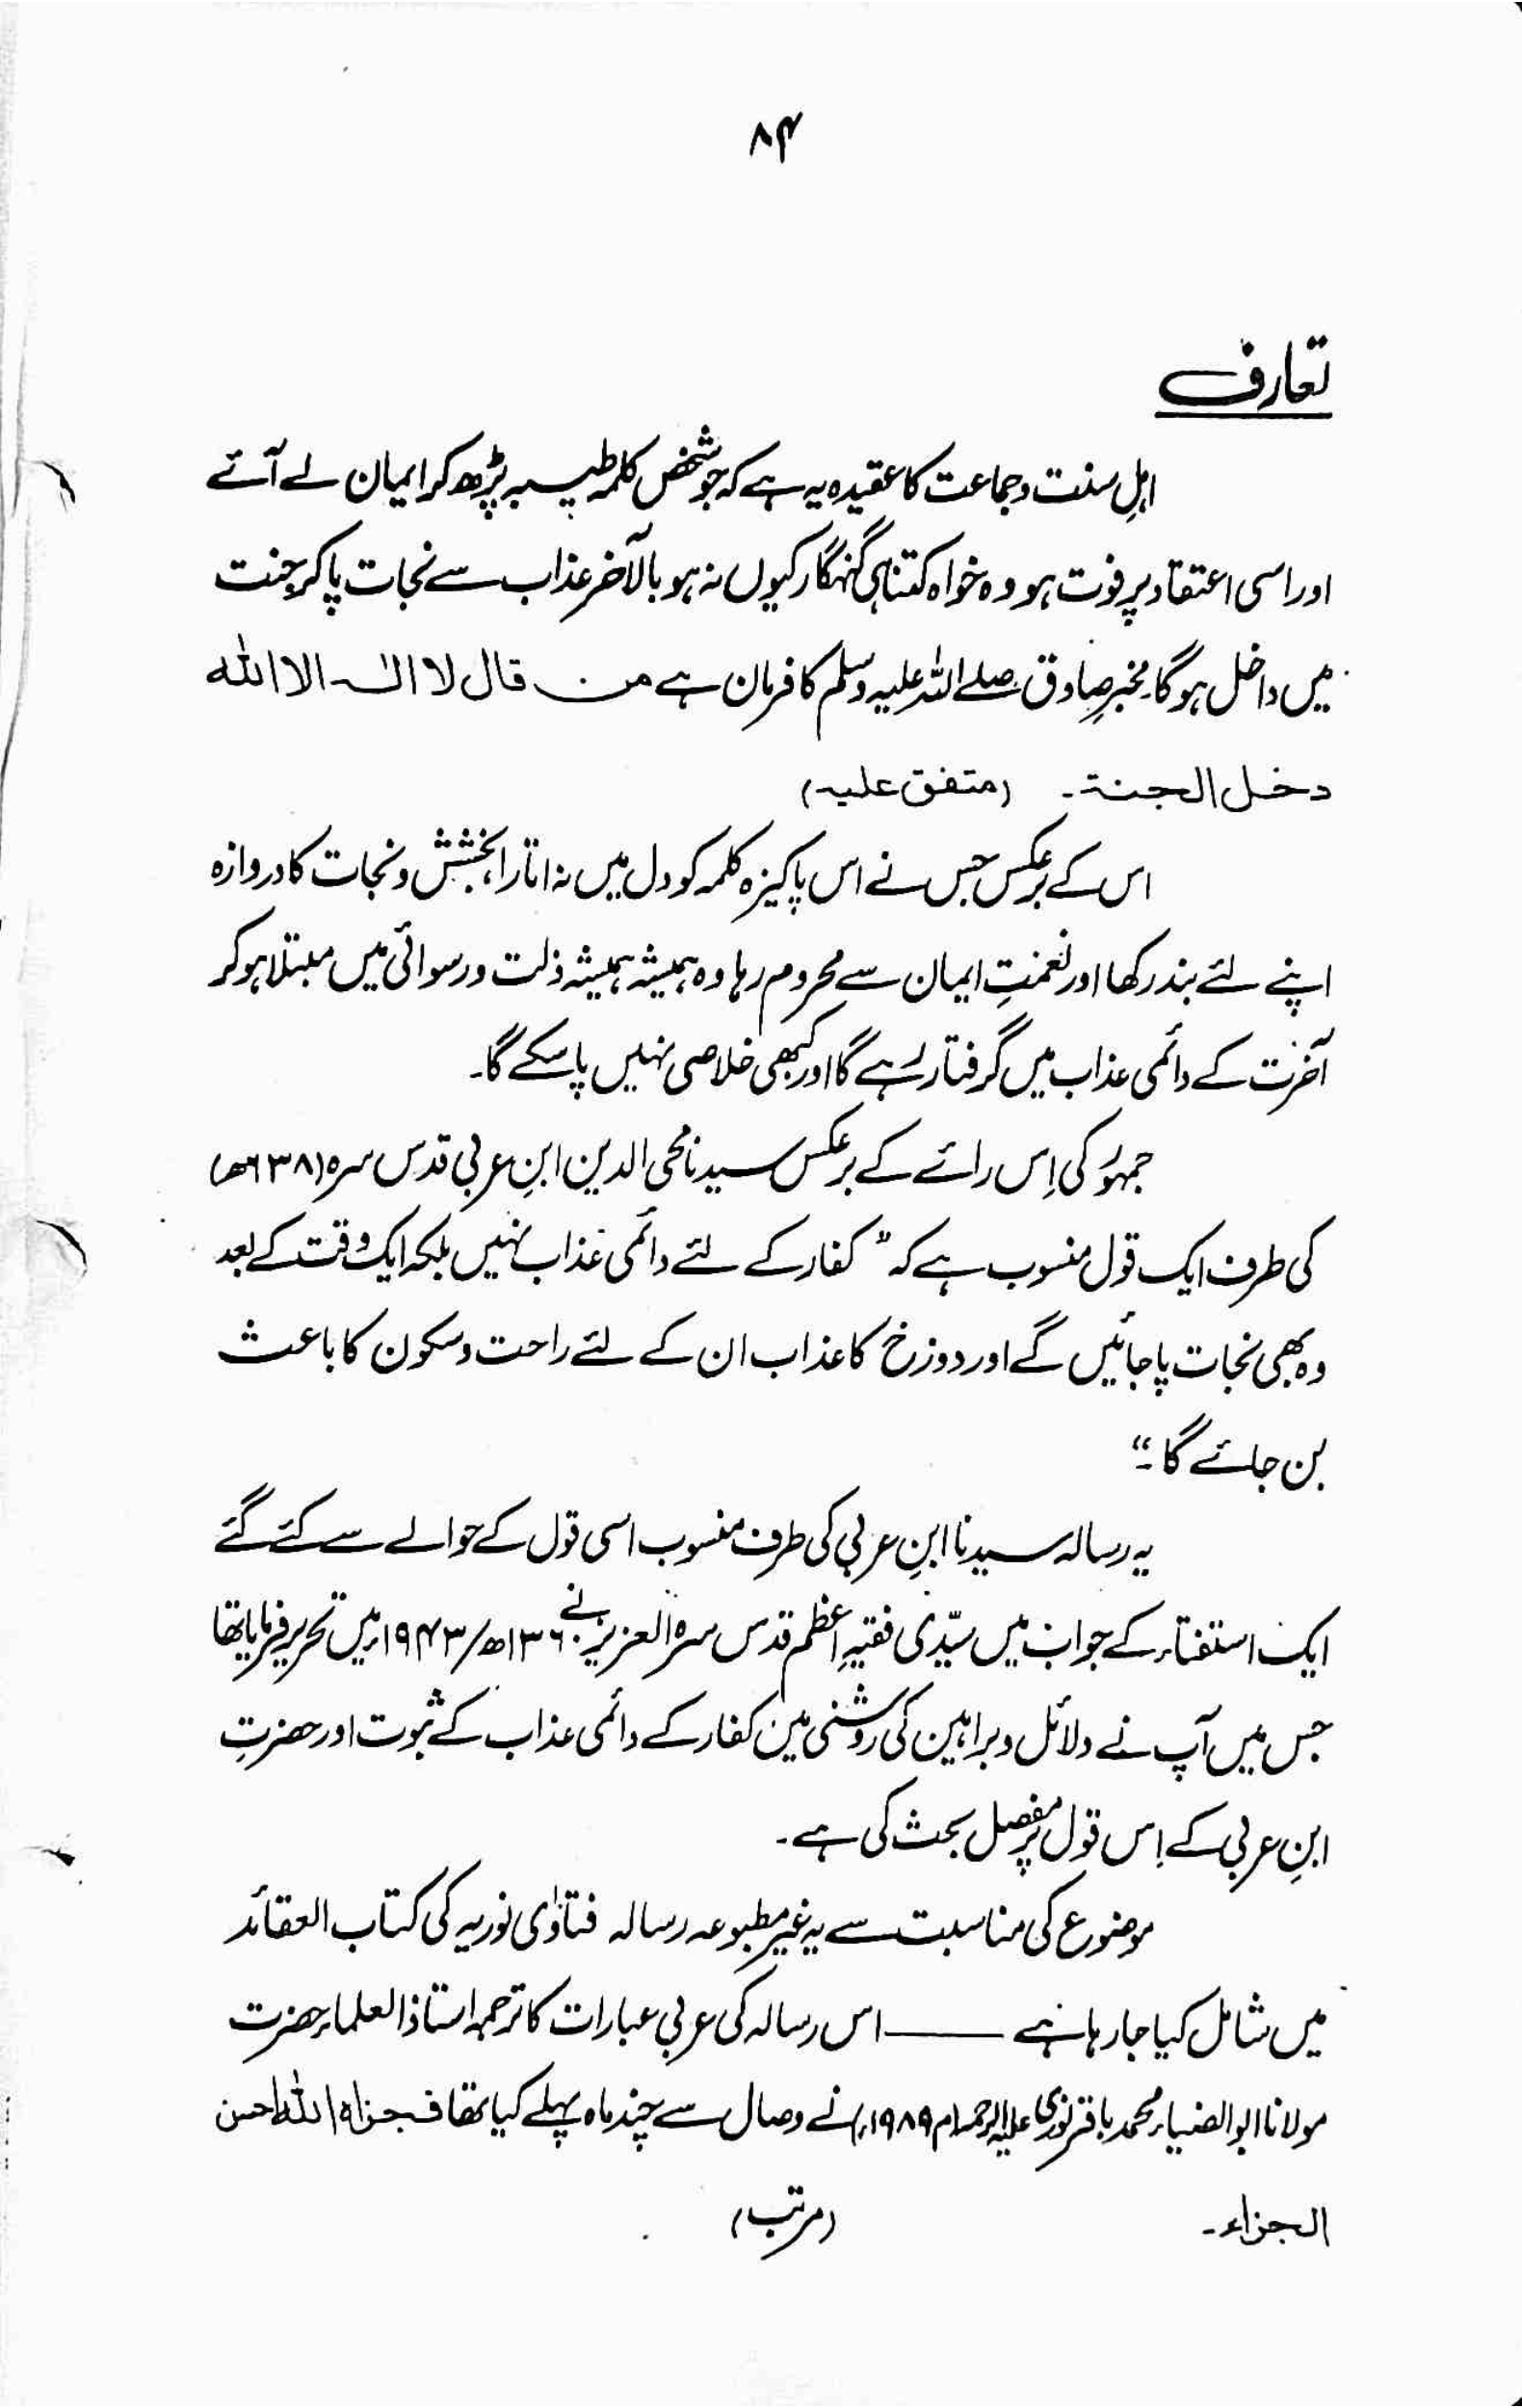 ۸۴
تعارف
اہلِ سنت وجماعت کا عقیدہ یہ ہے کہ جو شخص کلمہ طیبہ پڑھ کر ایمان لے آئے
اور اسی اعتقاد پر فوت ہو وہ خواہ کتنا ہی گنہگار کیوں نہ ہو بالآخر عذاب سے نجات پا کر جنت
میں داخل ہوگا۔ مخبرِ صادق صلے اللہ علیہ وسلم کا فرمان ہے من قال لا الٰہ الا اللہ
دخل الجنۃ۔ (متفق علیہ)
اس کے برعکس جس نے اس پاکیزہ کلمہ کو دل میں نہ اتارا، بخشش ونجات کا دروازہ
اپنے لئے بند رکھا اور نعمتِ ایمان سے محروم رہا وہ ہمیشہ ہمیشہ ذلت ورسوائی میں مبتلا ہو کر
آخرت کے دائمی عذاب میں گرفتار رہے گا اور کبھی خلاصی نہیں پا سکے گا۔
جمہور کی اِس رائے کے برعکس سیدنا محی الدین ابنِ عربی قدس سرہ (۶۳۸ھ)
کی طرف ایک قول منسوب ہے کہ ”کفار کے لئے دائمی عذاب نہیں بلکہ ایک وقت کے بعد
وہ بھی نجات پا جائیں گے اور دوزخ کا عذاب ان کے لئے راحت وسکون کا باعث
بن جائے گا۔“
یہ رسالہ سیدنا ابنِ عربی کی طرف منسوب اسی قول کے حوالے سے کئے گئے
ایک استفتاء کے جواب میں سیّدی فقیہِ اعظم قدس سرہ العزیز نے ۱۳۶۰ھ/۱۹۴۳ء میں تحریر فرمایا تھا
جس میں آپ نے دلائل وبراہین کی روشنی میں کفار کے دائمی عذاب کے ثبوت اور حضرتِ
ابنِ عربی کے اِس قول پر مفصل بحث کی ہے۔
موضوع کی مناسبت سے یہ غیر مطبوعہ رسالہ فتاوٰی نوریہ کی کتاب العقائد
میں شامل کیا جا رہا ہے ——— اس رسالہ کی عربی عبارات کا ترجمہ استاذ العلماء حضرت
مولانا ابوالضیاء محمد باقر نوری علیہ الرحمہ (م ۱۹۸۹ء) نے وصال سے چند ماہ پہلے کیا تھا فجزاہ اللہ احسن
الجزاء۔ (مرتب)